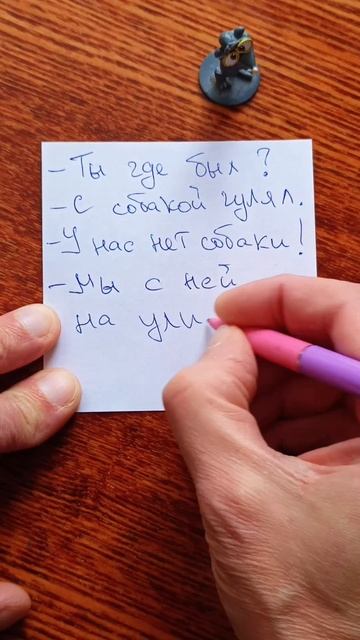 - Ты где был?
- С собакой гулял.
- У нас нет собаки!
- Мы с ней
на ули